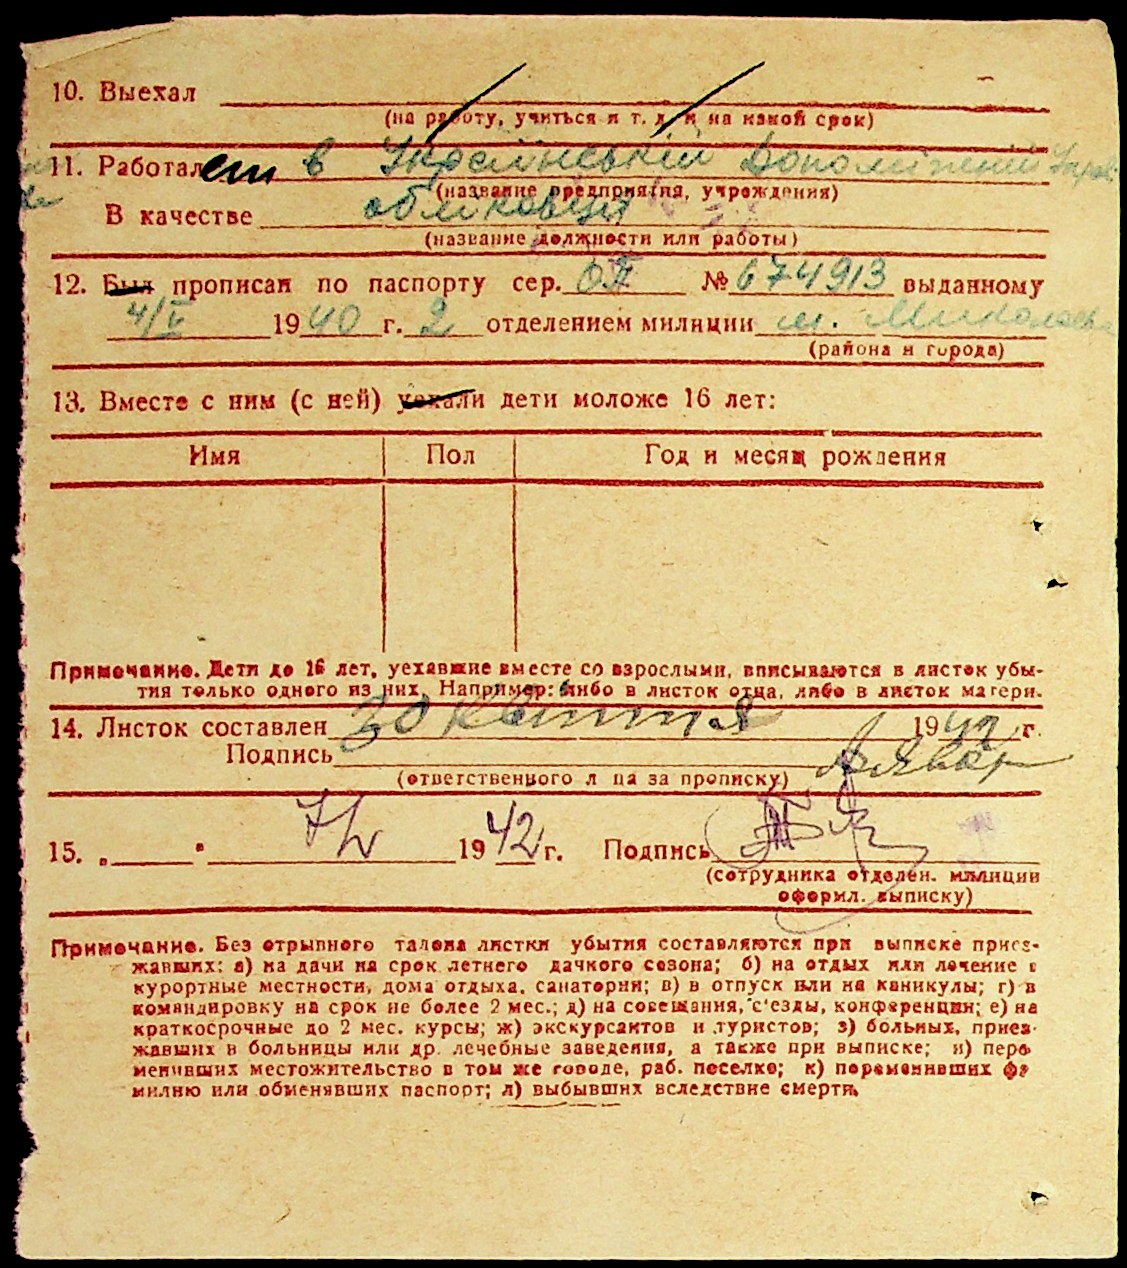 10. Выехал
(на работу, учиться и т. д. и на какой срок)
11. Работает в Українській Допоміжній
(название предприятия, учреждения)
В качестве обліковця
(название должности или работы)
12. Был прописан по паспорту сер. ОП № 674913 выданному
4/V 1940 г. 2 отделением милиции м.
(района и города)
13. Вместе с ним (с ней) уехали дети моложе 16 лет:
Имя Пол Год и месяц рождения
Примечание. Дети до 16 лет, уехавшие вместе со взрослыми, вписываются в листок убы-
тия только одного из них. Например: либо в листок отца, либо в листок матери.
14. Листок составлен 30 квітня 1942 г.
Подпись
(ответственного л ца за прописку)
15. „ " 1942 г. Подпись
(сотрудника отделен. милиции
оформл. выписку)
Примечание. Без отрывного талона листки убытия составляются при выписке приез-
жавших: а) на дачи на срок летнего дачкого сезона; б) на отдых или лечение в
курортные местности, дома отдыха, санатории; в) в отпуск или на каникулы; г) в
командировку на срок не более 2 мес.; д) на совещания, с'езды, конференции; е) на
краткосрочные до 2 мес. курсы; ж) экскурсантов и туристов; з) больных, приез-
жавших в больницы или др. лечебные заведения, а также при выписке; и) пере
менивших местожительство в том же городе, раб. поселке; к) переменивших фа
милию или обменявших паспорт; л) выбывших вследствие смерти.